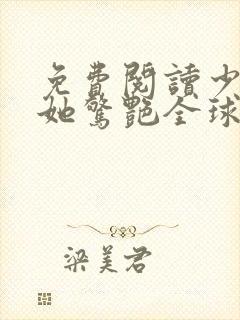 免費閱讀少
她驚艷全球
梁美君